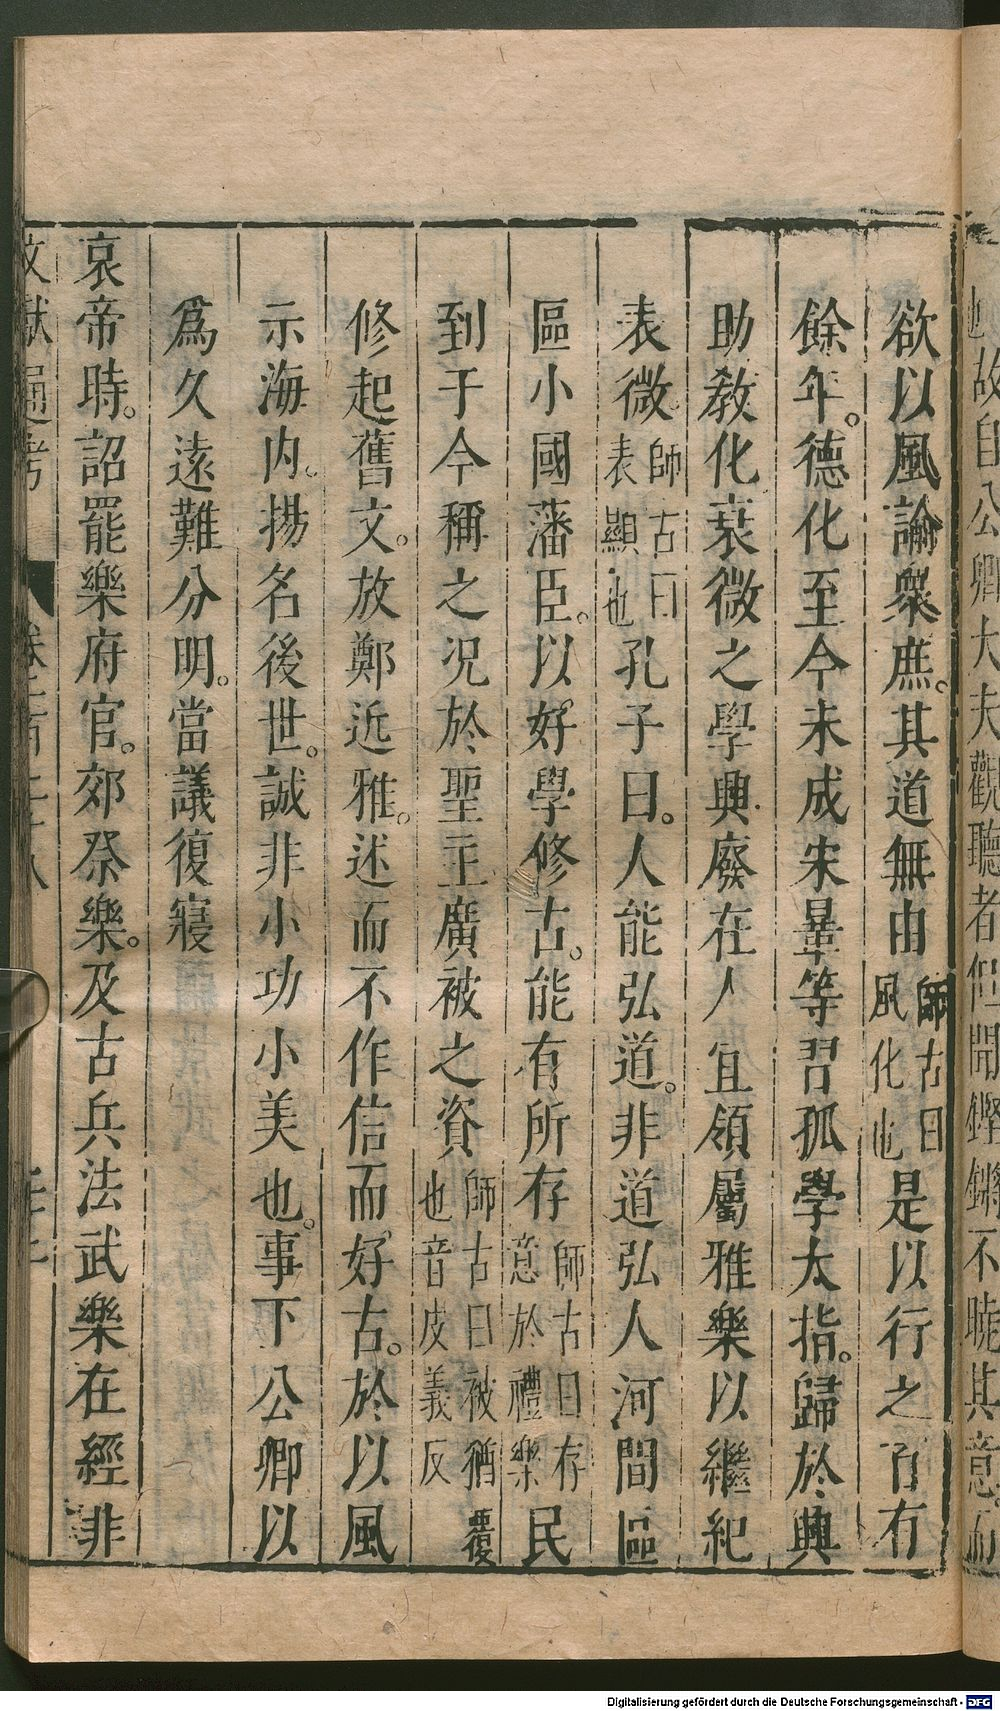 也故自公卿大夫觀聽者但聞鏗鏘不曉其意而
欲以風諭衆庶。其道無由師古曰風化也是以行之百有
餘年。德化至今未成宋曅等習孤學大指。歸於興
助教化衰微之學興廢在人宜領屬雅樂以繼紀
表微師古曰表顯也孔子曰。人能弘道。非道弘人河間區
區小國藩臣。以好學修古。能有所存師古曰存意於禮樂民
到于今稱之况於聖王廣被之資師古曰被猶覆也音皮義反
修起舊文。放鄭近雅。述而不作信而好古。於以風
示海内。揚名後世。誠非小功小美也。事下公卿以
爲久遠難分明。當議復寢
哀帝時。詔罷樂府官。郊祭樂。及古兵法武樂在經非
文獻通考
Digitalisierung gefördert durch die Deutsche Forschungsgemeinschaft - DFG